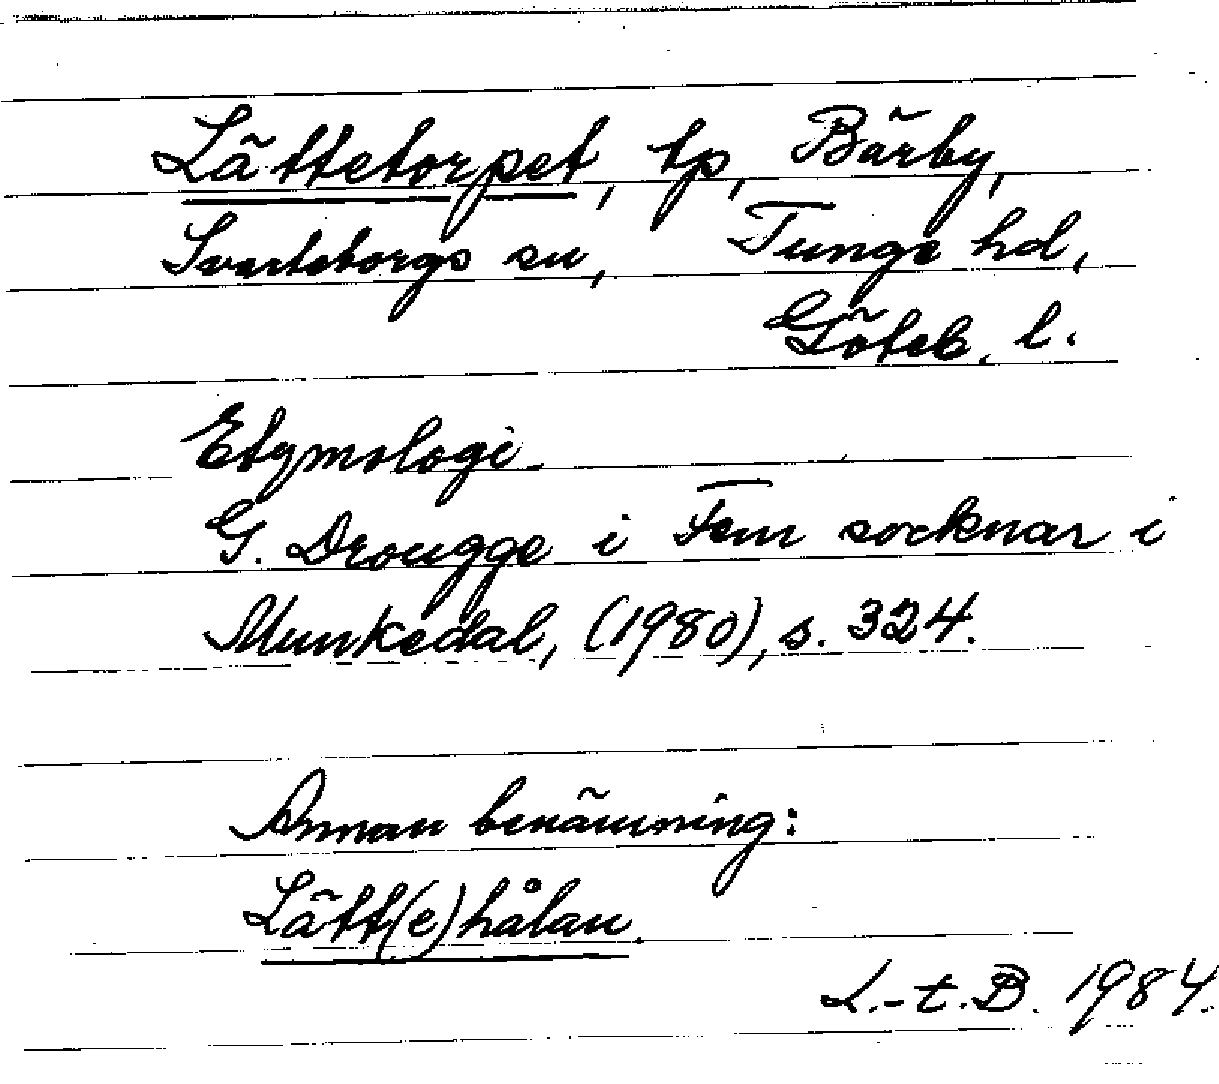 Lättetorpet, tp, Bärby,
Svarteborgs sn, Tunge hd,
Göteb. l.
Etymologi
G. Drougge i Fem socknar i
Munkedal, (1980), s. 324.
Annan benämning:
Lätt(e)hålan.
L.-t.B. 1984.